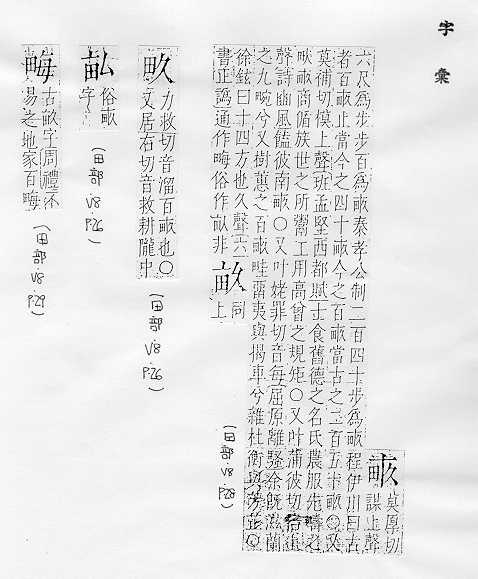 字彙
畝
莫厚切
謀上聲
六尺爲步步百爲畝秦孝公制二百四十步爲畝程伊川曰古
者百畝止當今之四十畝今之百畝當古之二百五十畝○又
莫補切模上聲班孟堅西都賦士食舊德之名氏農服先疇之
畎畝商循族世之所鬻工用高曾之規矩○又叶蒲彼切
聲詩豳風饁彼南畝○又叶姥罪切音每屈原離騷余旣滋蘭
之九畹兮又樹蕙之百畝畦留夷與揭車兮雜杜衡與芳芷○
徐鉉曰十四方也久聲六
書正譌通作畮俗作非
畞
同
上
(田部.V8 P.28)
畂
力救切音溜百畝也○
又居右切音救耕隴中
(田部.V8 P.26)
俗畝
字
(田部.V8 P.26)
畮
古畝字周禮不
易之地家百畮
(田部.V8 P.29)